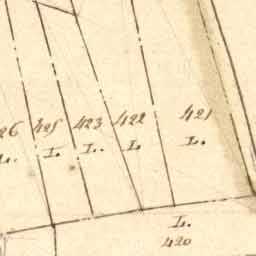 426 425 423 422 421
L. L. L. L L.
L.
420